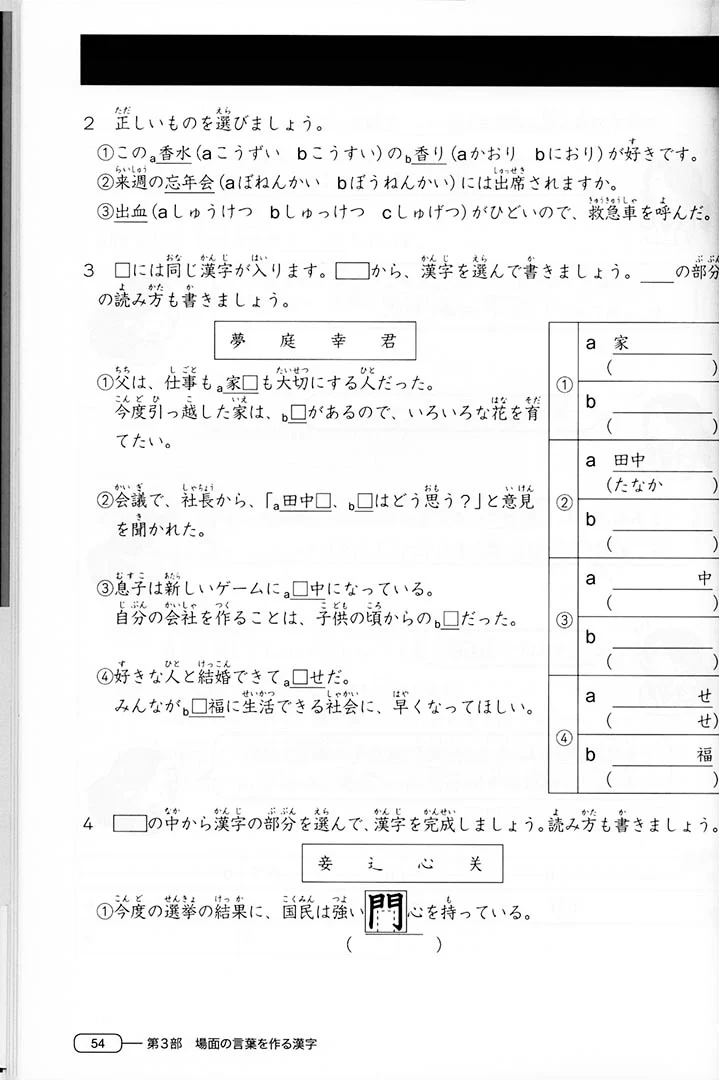 2 正しいものを選びましょう。
①このa香水(aこうずい bこうすい)のb香り(aかおり bにおり)が好きです。
②来週の忘年会(aぼねんかい bぼうねんかい)には出席されますか。
③出血(aしゅうけつ bしゅっけつ cしゅげつ)がひどいので、救急車を呼んだ。
3 □には同じ漢字が入ります。□から、漢字を選んで書きましょう。＿の部分
の読み方も書きましょう。
夢 庭 幸 君
①父は、仕事もa家□も大切にする人だった。
今度引っ越した家は、b□があるので、いろいろな花を育
てたい。
②会議で、社長から、「a田中□、b□はどう思う？」と意見
を聞かれた。
③息子は新しいゲームにa□中になっている。
自分の会社を作ることは、子供の頃からのb□だった。
④好きな人と結婚できてa□せだ。
みんながb□福に生活できる社会に、早くなってほしい。
① a 家
( )
b
( )
② a 田中
(たなか )
b
( )
③ a 中
( )
b
( )
④ a せ
( せ)
b 福
( )
4 □の中から漢字の部分を選んで、漢字を完成しましょう。読み方も書きましょう。
妾 辶 心 关
①今度の選挙の結果に、国民は強い門心を持っている。
( )
54 第3部 場面の言葉を作る漢字